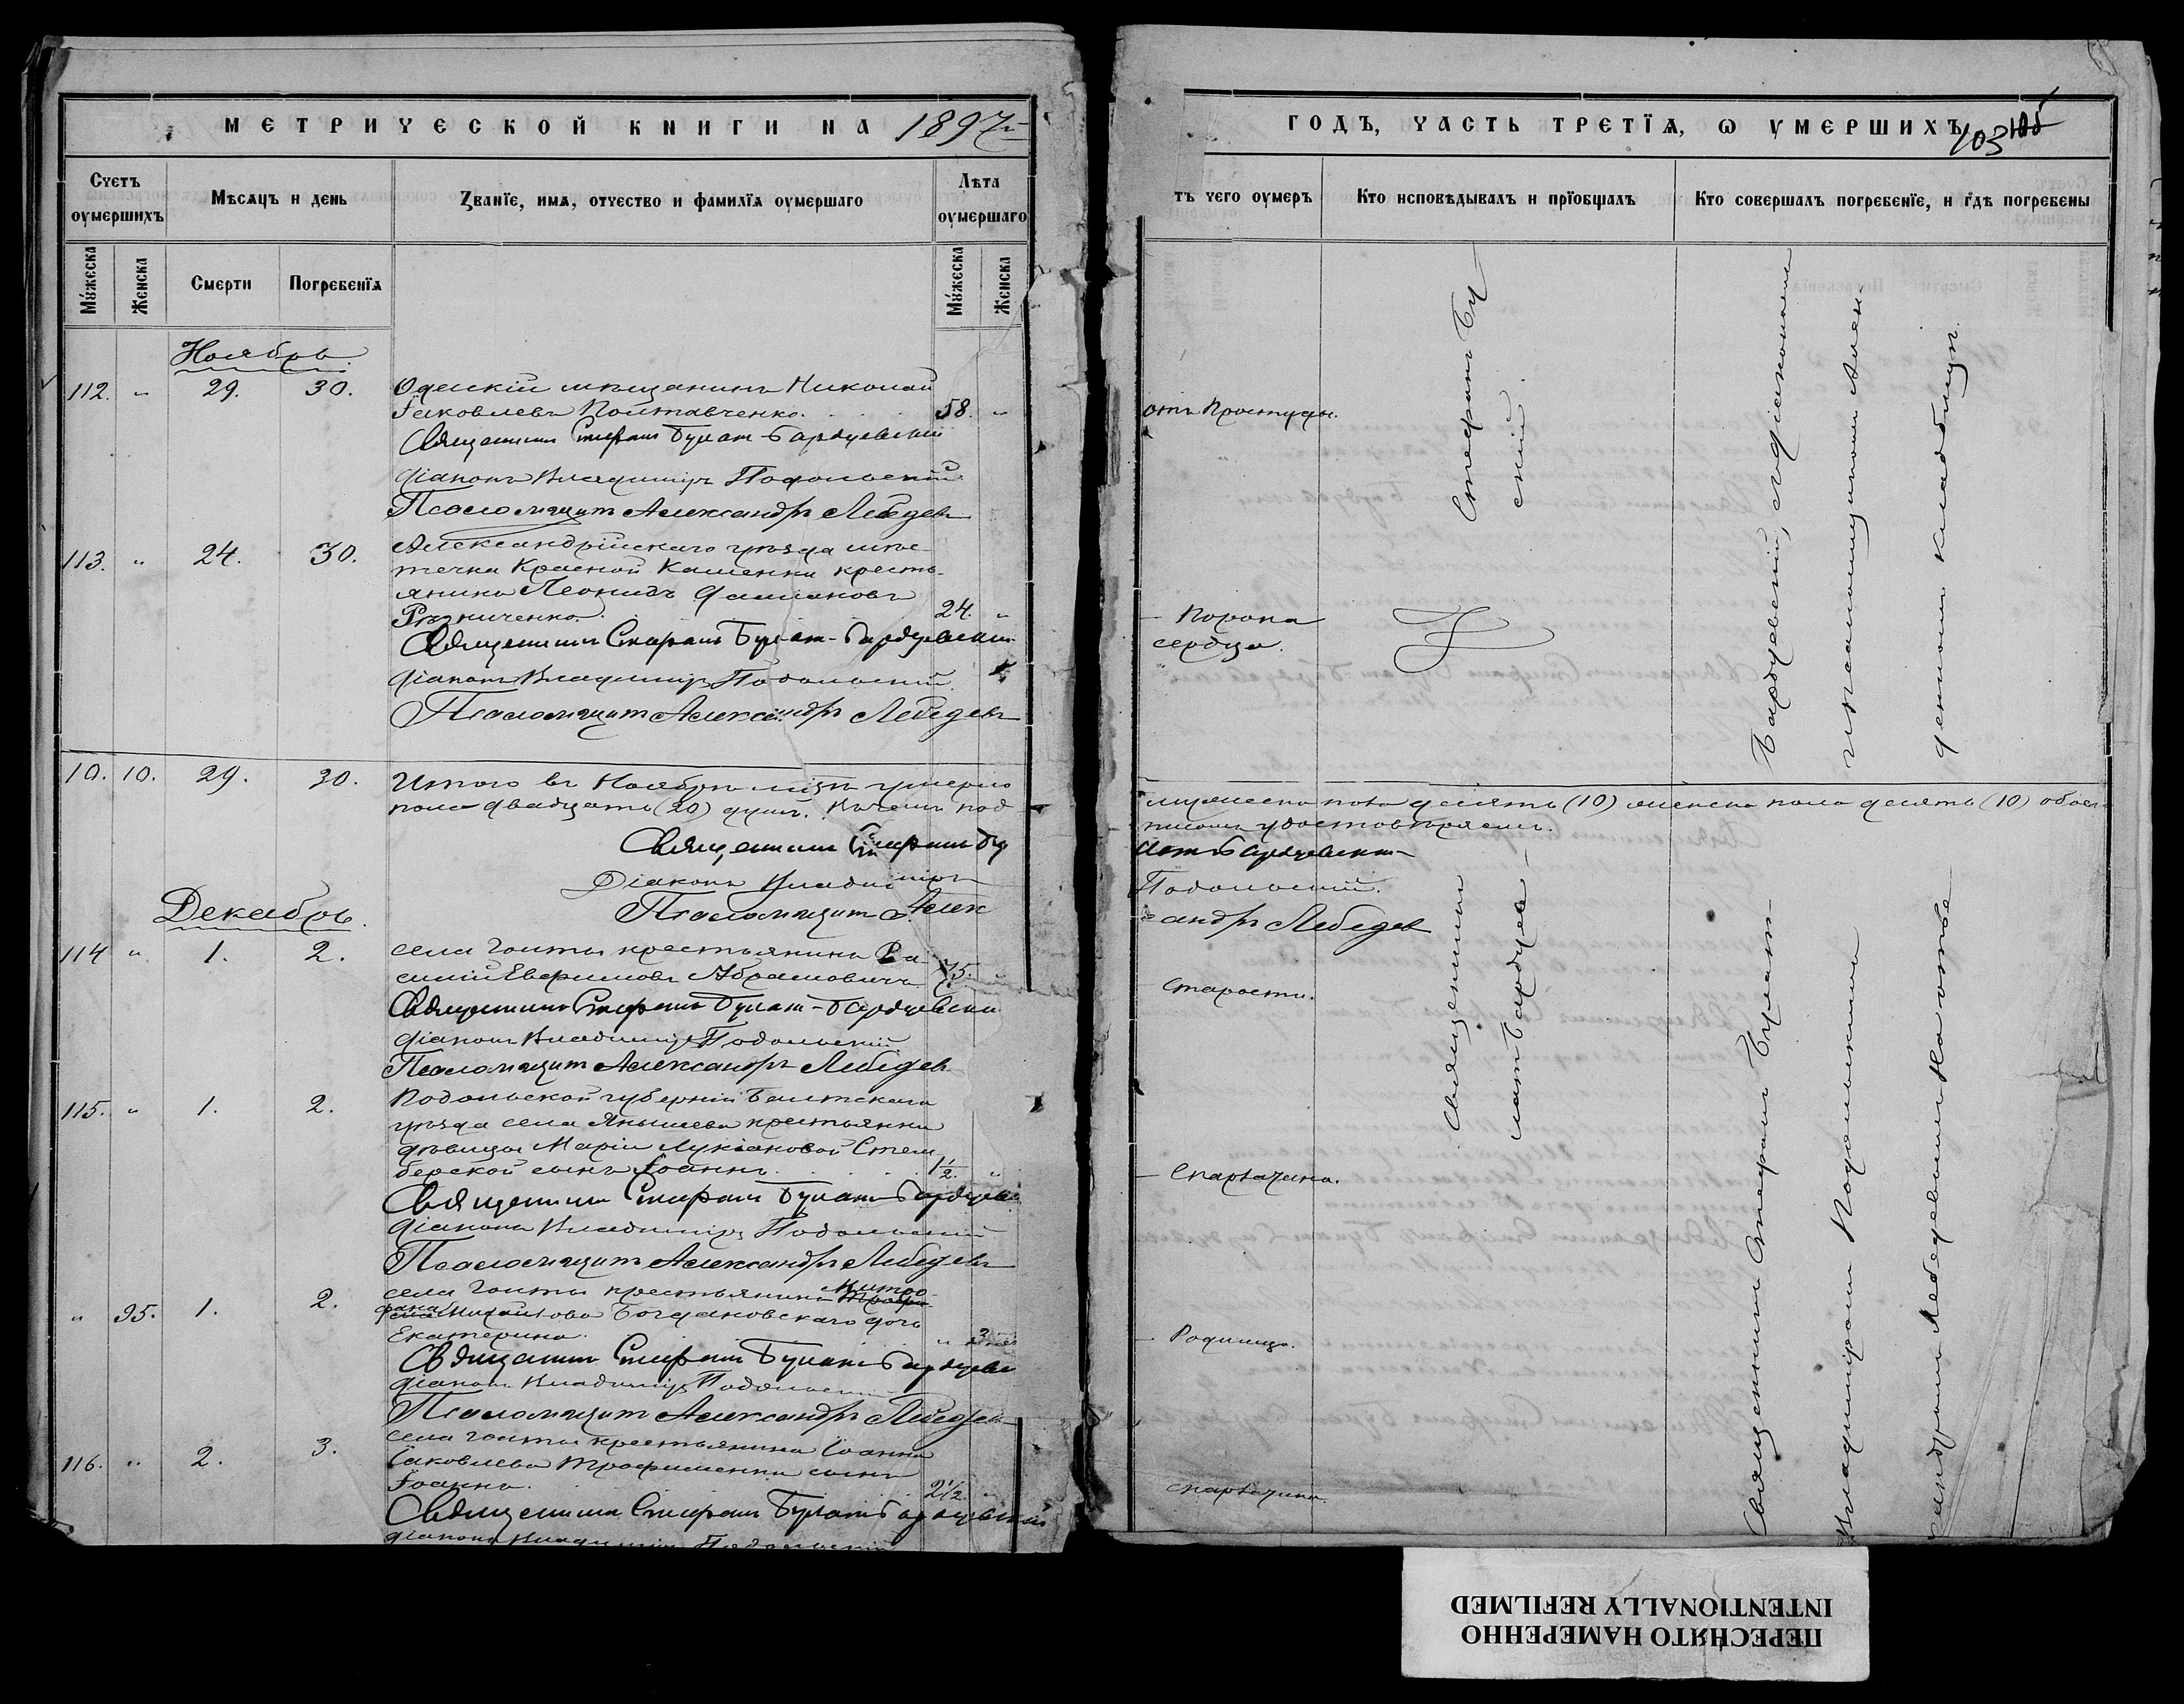 МЕТРИЧЕСКОЙ КНИГИ НА 1897й
Счетъ оумершихъ
Мѣсяцъ и день
Званїе, имя, отчество и фамилїя оумершаго
Лѣта оумершаго
Мужеска
Женска
Смерти
Погребенїя
Мужеска
Женска
Ноябрь.
112. " 29. 30. Одесскій мѣщанинъ Николай
Іаковлевъ Полтавченко. 58. "
Священникъ Стефанъ Булат-Бардуевскій
Діаконъ Владиміръ Подольскій
Псаломщикъ Александръ Лебедевъ
113. " 24. 30. Александрійскаго уѣзда мѣс-
течка Красной Каменки кресть-
янинъ Леонидъ Даміановъ
Рѣзниченко. 24. "
Священникъ Стефанъ Булат-Бардуевскій
Діаконъ Владиміръ Подольскій.
Псаломщикъ Александръ Лебедевъ
10. 10. 29. 30. Итого въ Ноябрѣ мѣсяцѣ умерло
пола двадцать (20) душъ. Въ чемъ под-
Священникъ Стефанъ Бу
Діаконъ Владиміръ
Псаломщикъ Алек
Декабрь.
114 " 1. 2. села крестьянинъ Ва-
силій Евфимовъ Абрамовичъ 75. "
Священникъ Стефанъ Булат-Бардуевскій
Діаконъ Владиміръ Подольскій
Псаломщикъ Александръ Лебедевъ
115. " 1. 2. Подольской губерніи Балтскаго
уѣзда села крестьянки
дѣвицы Маріи Лукіановой
сынъ Іоаннъ. 1½. "
Священникъ Стефанъ Булат-Бардуев
Діаконъ Владиміръ Подольскій
Псаломщикъ Александръ Лебедевъ
" 95. 1. 2. села крестьянина Митро-
фана Михайлова Богдановскаго дочь
Екатерина. " 3
Священникъ Стефанъ Булат-Бардуев
Діаконъ Владиміръ Подольскій
Псаломщикъ Александръ Лебедевъ
116. " 2. 3. села крестьянина Іоанна
Іаковлева Трофименка сынъ
Іоаннъ. 2½. "
Священникъ Стефанъ Булат-Бардуевскій
Діаконъ Владиміръ Подольскій
ГОДЪ, ЧАСТЬ ТРЕТЇЯ, Ѡ УМЕРШИХЪ
103
тъ чего оумеръ
Кто исповѣдывалъ и прїобщалъ
Кто совершалъ погребенїе, и гдѣ погребены
отъ Простуды.
Стефанъ Бу
скій.
Бардуевскій, съ діакономъ
и псаломщикомъ Алек-
денномъ кладбищѣ.
— Порока
сердца.
мужеска пола десять (10) женска пола десять (10) обоего
писомъ удостовѣряемъ.
лат-Бардуевскій
Подольскій.
сандръ Лебедев
Священникъ
лат-Бардуев-
Священникъ Стефанъ Булат-
Владиміромъ Подольскимъ
сандромъ Лебедевымъ на отве-
— Старости.
— Скарлатина.
— Родимца.
Скарлатина.
ПЕРЕСНЯТО НАМЕРЕННО
INTENTIONALLY REFILMED